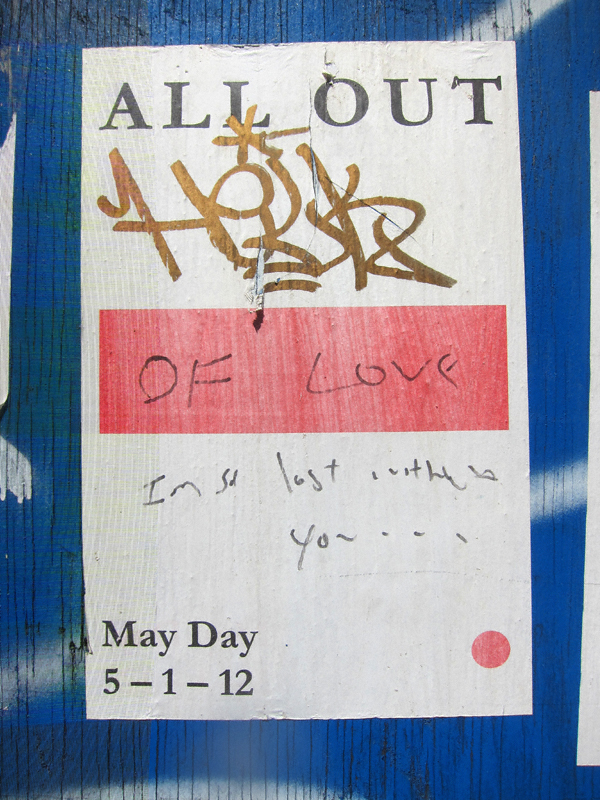 ALL OUT
OF LOVE
Im so lost without
you....
May Day
5–1–12